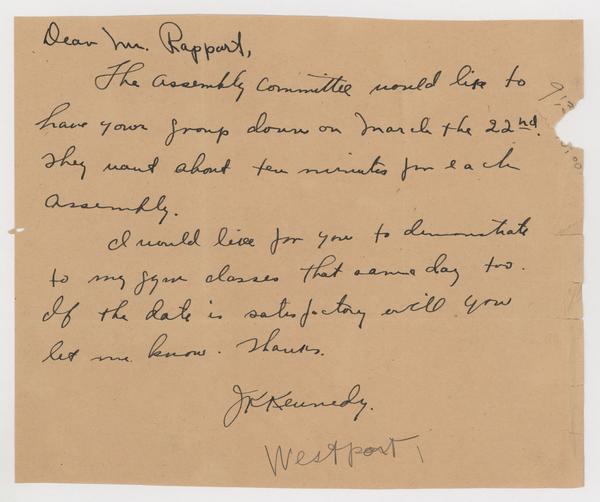 Dear Mr. Rappart,
The Assembly Committee would like to
have your group down on March the 22nd.
They want about ten minutes for each
assembly.
I would like for you to demonstrate
to my gym classes that same day too.
If the date is satisfactory will you
let me know. Thanks.
JKKennedy.
Westport,